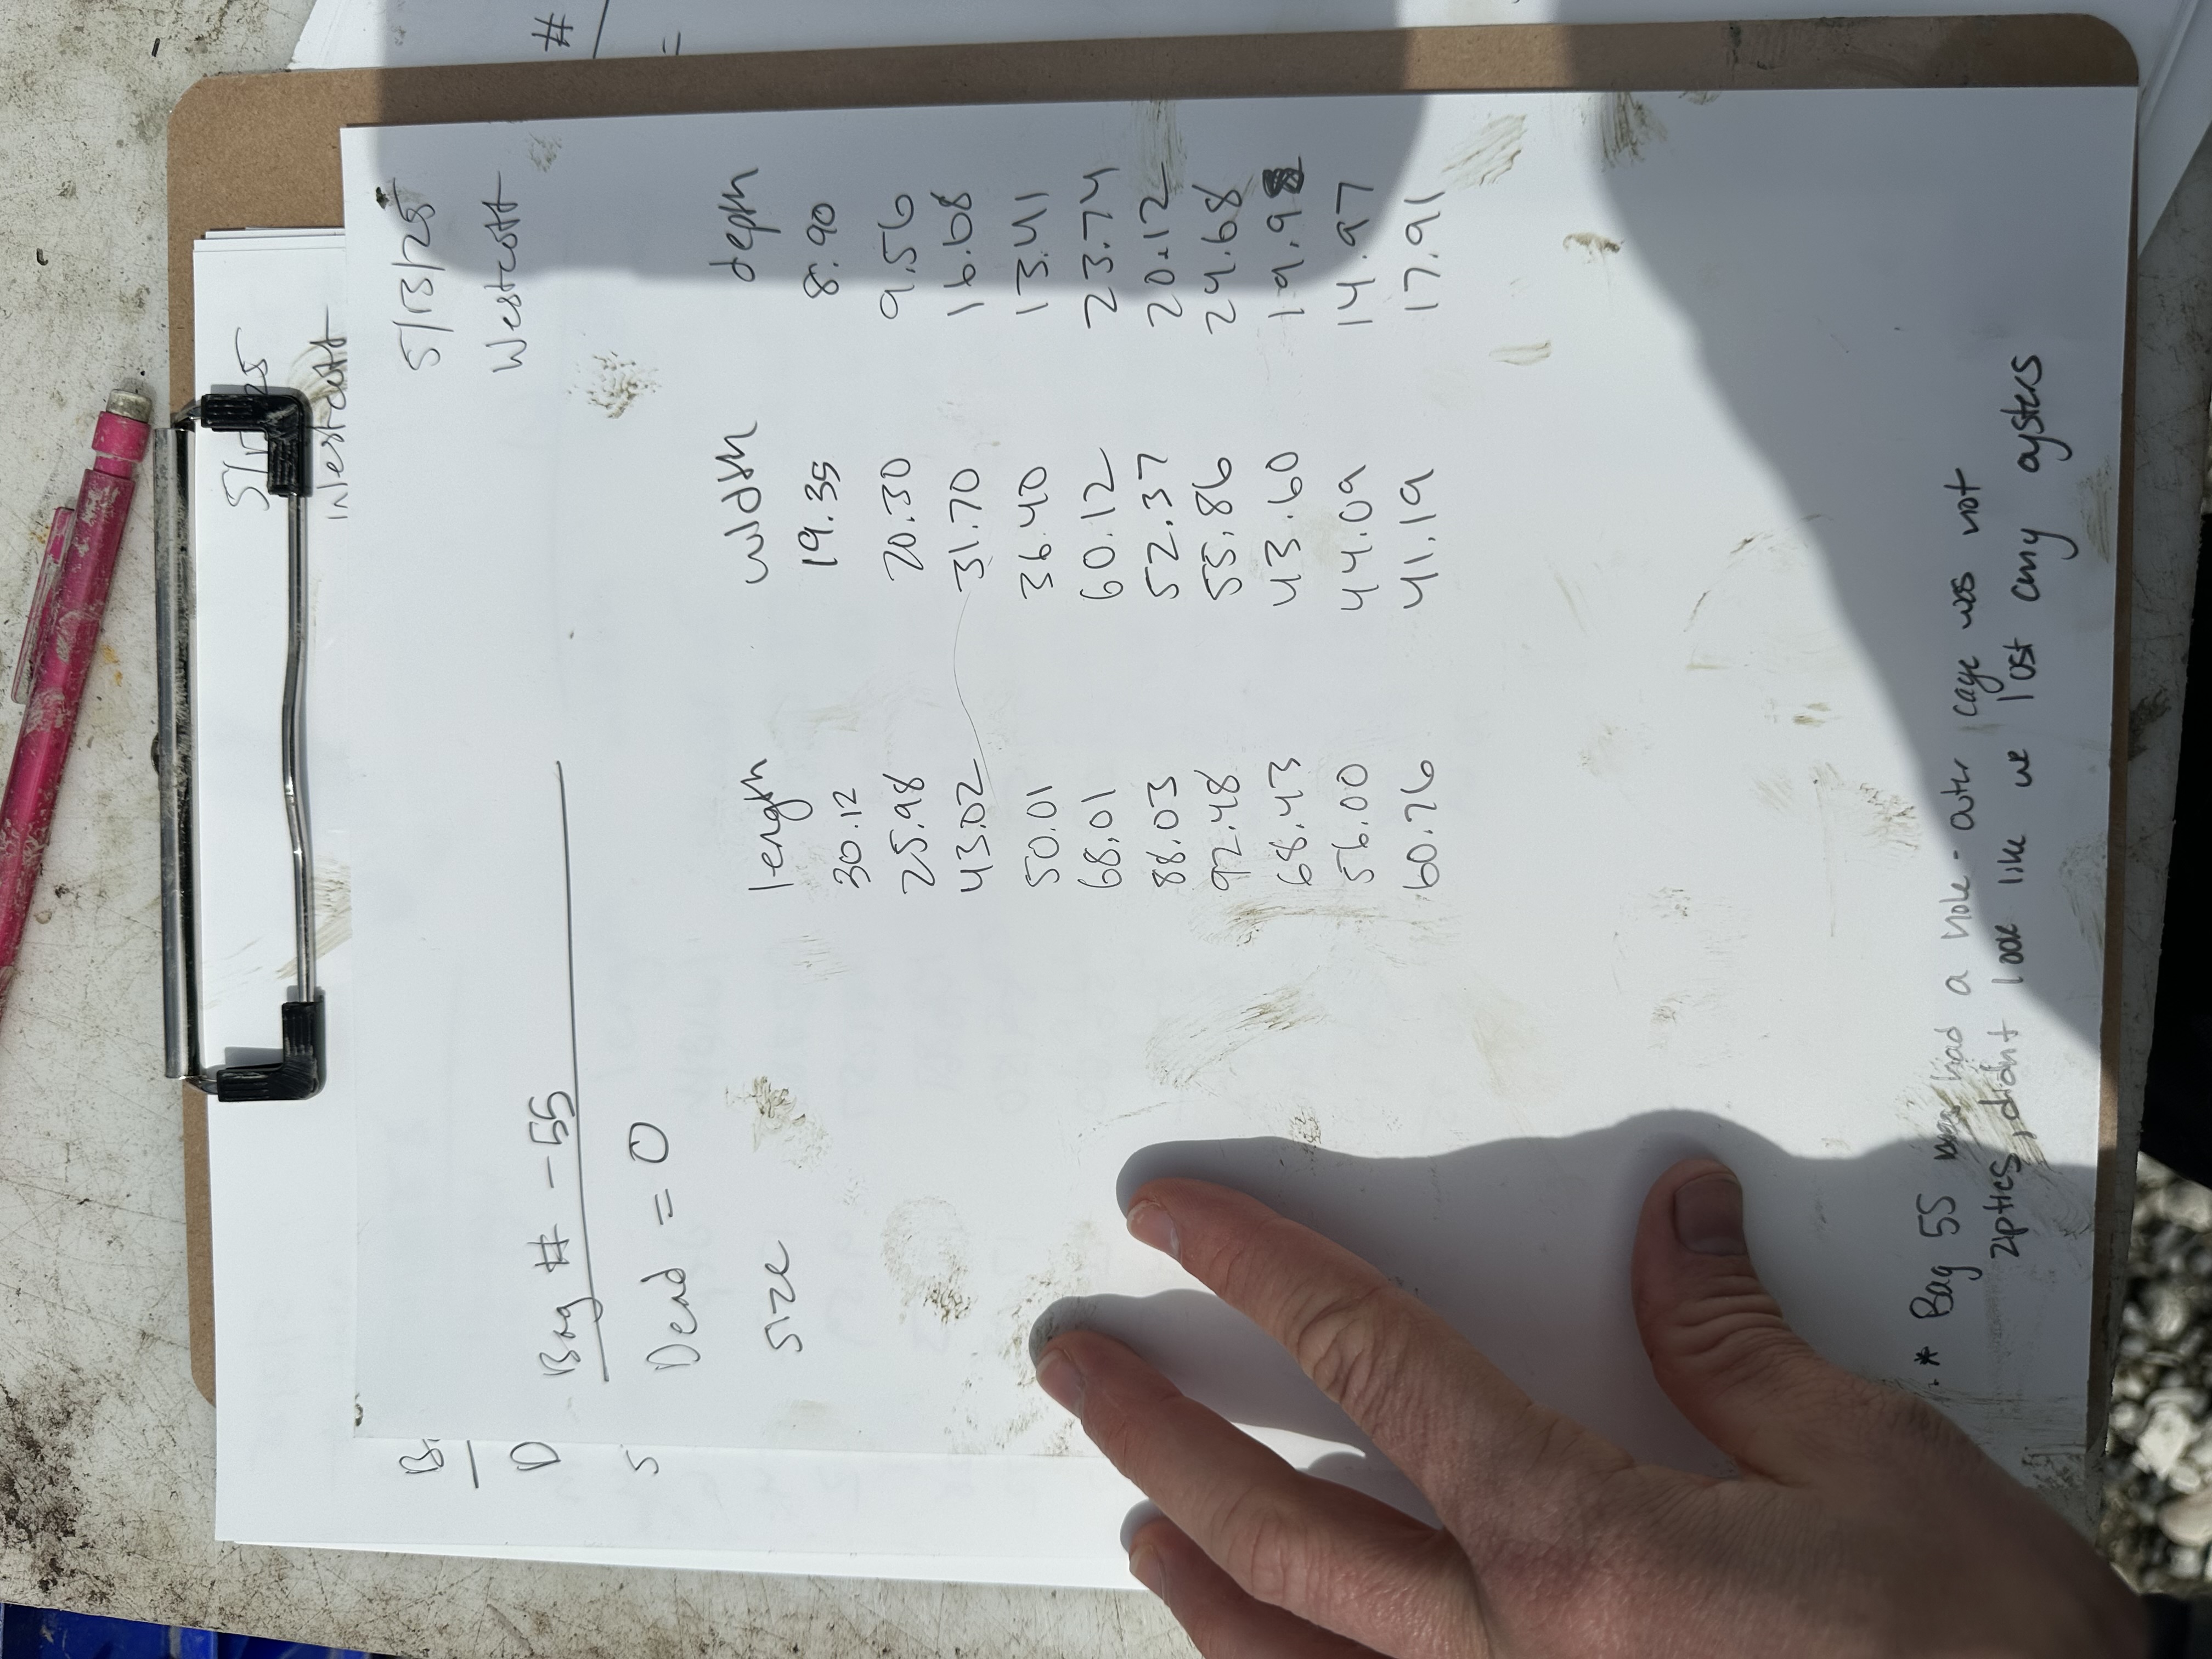 5/13/25
Westcott
5/13/25
Westcott
Bag # - 55
#
Dead = 0
size length width depth
30.12 19.35 8.90
25.98 20.30 9.56
43.02 31.70 16.68
50.01 36.40 13.41
68.01 60.12 23.74
88.03 52.37 20.12
92.48 55.86 24.68
68.43 43.60 19.98
56.00 44.09 14.97
60.26 41.19 17.91
* Bag 55 had a hole - outer cage was not
zipties, didnt look like we lost any oysters